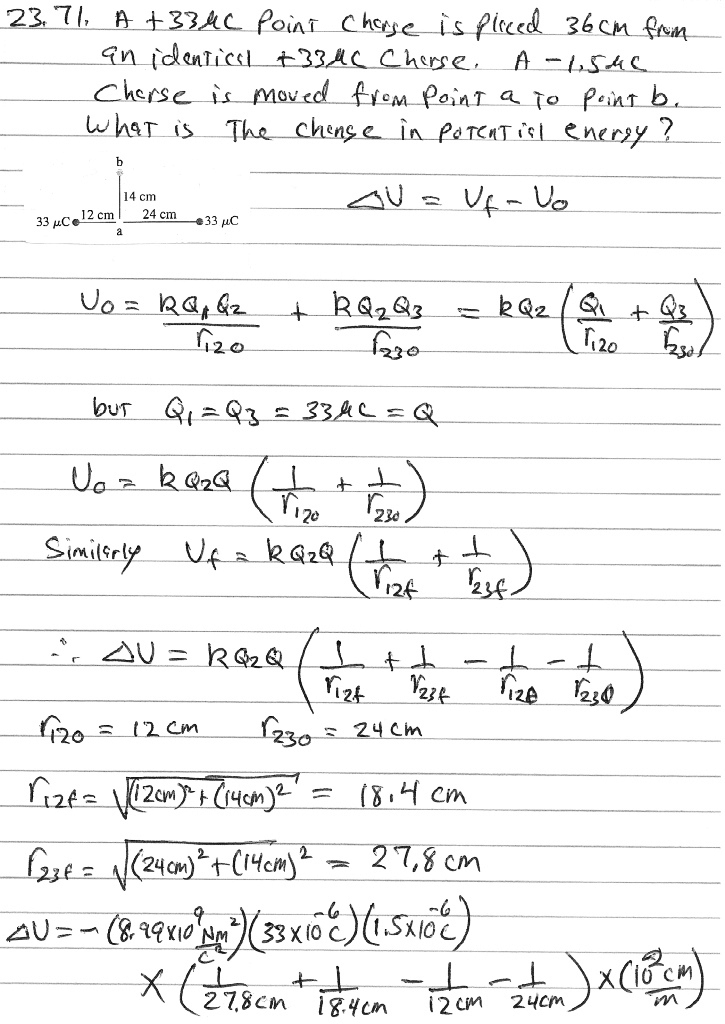 23.71. A +33μC Point Charge is placed 36cm from
an identical +33μC Charge. A -1.5μC
Charge is moved from Point a To Point b.
What is The change in Potential energy?
b
14 cm
33 μC 12 cm 24 cm 33 μC
a
ΔU = U_f - U_o
U_o = kQ_1Q_2/r_12o + kQ_2Q_3/r_23o = kQ_2 (Q_1/r_12o + Q_3/r_23o)
but Q_1 = Q_3 = 33μC = Q
U_o = kQ_2Q (1/r_12o + 1/r_23o)
Similarly U_f = kQ_2Q (1/r_12f + 1/r_23f)
∴ ΔU = kQ_2Q (1/r_12f + 1/r_23f - 1/r_12o - 1/r_23o)
r_12o = 12 cm r_23o = 24 cm
r_12f = √((12cm)² + (14cm)²) = 18.4 cm
r_23f = √((24cm)² + (14cm)²) = 27.8 cm
ΔU = - (8.99×10⁹ Nm²/C²)(33×10⁻⁶C)(1.5×10⁻⁶C)
× (1/27.8cm + 1/18.4cm - 1/12cm - 1/24cm) × (10²cm/m)